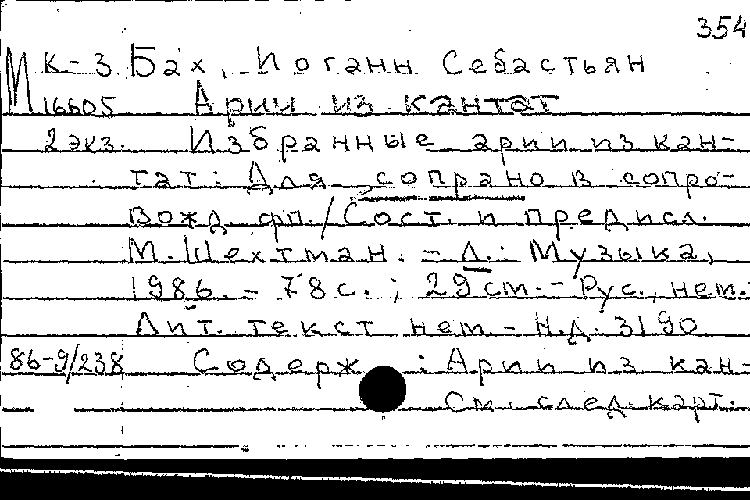 354
М К-3 Бах, Иоганн Себастьян
16605 Арии из кантат
2 экз. Избранные арии из кан-
тат: Для сопрано в сопро-
вожд. фп./Сост. и предисл.
М. Шехтман. - Л.: Музыка,
1986. - 78 с.; 29 см. - Рус., нем.
Лит. текст нем. - Н.Д. 3190
86-9/238 Содерж.: Арии из кан-
См. след. карт.